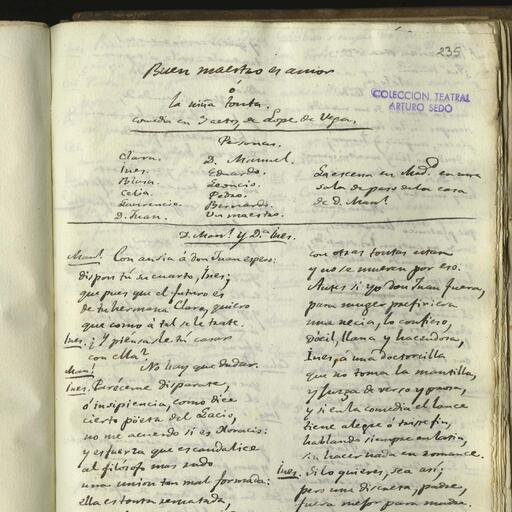 235
Buen maestro es amor
ó
la niña tonta.
comedia en 3 actos, de Lope de Vega.
COLECCION TEATRAL
ARTURO SEDÓ
Personas.
Clara.
Ines.
Blasa.
Celia.
Laurencio.
D. Juan.
D. Manuel.
Eduardo.
Leoncio.
Pedro.
Bernardo.
Un maestro.
La escena en Madd. en una
sala de paso de la casa
de D. Manl.
D. Manl. y Da. Ines.
Manl. Con ansia á don Juan espero:
dispon tú su cuarto, Ines;
que pues que el futuro es
de tu hermana Clara, quiero
que como á tal se le trate.
Ines. ¿Y piensas le tú casar
con ella?
Manl. No hay que dudar.
Ines. Paréceme disparate,
ó insipiencia, como dice
cierto pöeta del Lacio,
no me acuerdo si es Horacio:
y es fuerza que escandalice
al filósofo mas rudo
una union tan mal formada:
ella es tonta rematada,
con otras tontas estan
y no se mueren por eso.
Antes si yo don Juan fuera,
para muger prefiriera
una necia, lo confieso,
dócil, llana y hacendosa,
Ines, á una doctorcilla
que no toma la mantilla,
y juzga de verso y prosa,
y si en la comedia el lance
tiene alegre ó triste fin,
hablando siempre en latin,
sin hacer nada en romance.
Ines. Si lo quieres, sea asi;
pero una discreta, padre,
fuera mejor para madre.